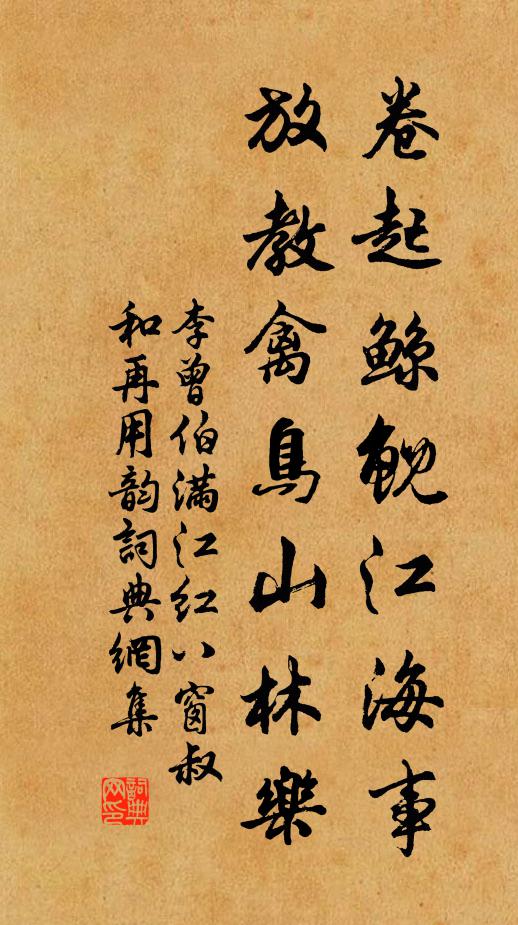 卷起鲸鲵江海事
放教禽鳥山林樂
李曾伯滿江红八窗叔
和再用韵詞典網集
詞典
网印